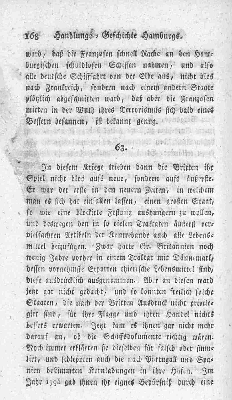 168 Handlungs-Geschichte Hamburgs.
ward, daß die Franzosen schnell Rache an den Ham-
burgischen schuldlosen Schiffen nahmen, und also
alle Deutsche Schiffart von der Elbe aus, nicht bloß
nach Frankreich, sondern nach einem andern Staate
plötzlich abgeschnitten ward, das aber die Franzosen
wieder in der Wuth ihres Terrorismus sich bald eines
bessern besannen, ist bekannt genug.
63.
In diesem Kriege trieben dann die Britten ihr
Spiel nicht bloß aufs neue, sondern aufs äusserste.
Es war der erste in den neuern Zeiten, in welchem
man es sich hat ein fallen lassen, einen großen Staat,
so wie eine blockirte Festung aushungern zu wollen,
und deswegen den in so vielen Traktaten anders fest
gesetzten Artikeln der Kontrebande auch alle Lebens-
mittel beizufügen. Zwar hatte Gr. Britannien noch
wenig Jahre vorher in einem Traktat mit Dännemark,
dessen vornehmste Exporten thierische Lebensmittel sind,
diese ausdrücklich ausgenommen. Aber an diesen ward
jetzt gar nicht gedacht, und so konnten freilich solche
Staaten, die nach der Britten Ausdruck nicht privile-
girt sind, für ihre Flagge und ihren Handel nichts
bessers erwarten. Jetzt kam es ihnen gar nicht mehr
darauf an, ob die Schiffsdokumente richtig wären.
Noch immer erklärten sie dieselben für falsch oder simu-
lirt, und schleppten auch die nach Portugall und Spa-
nien bestimmten Kornladungen in ihre Häfen. Im
Jahr 1794 gab ihnen ihr eignes Bedürfniß durch eine